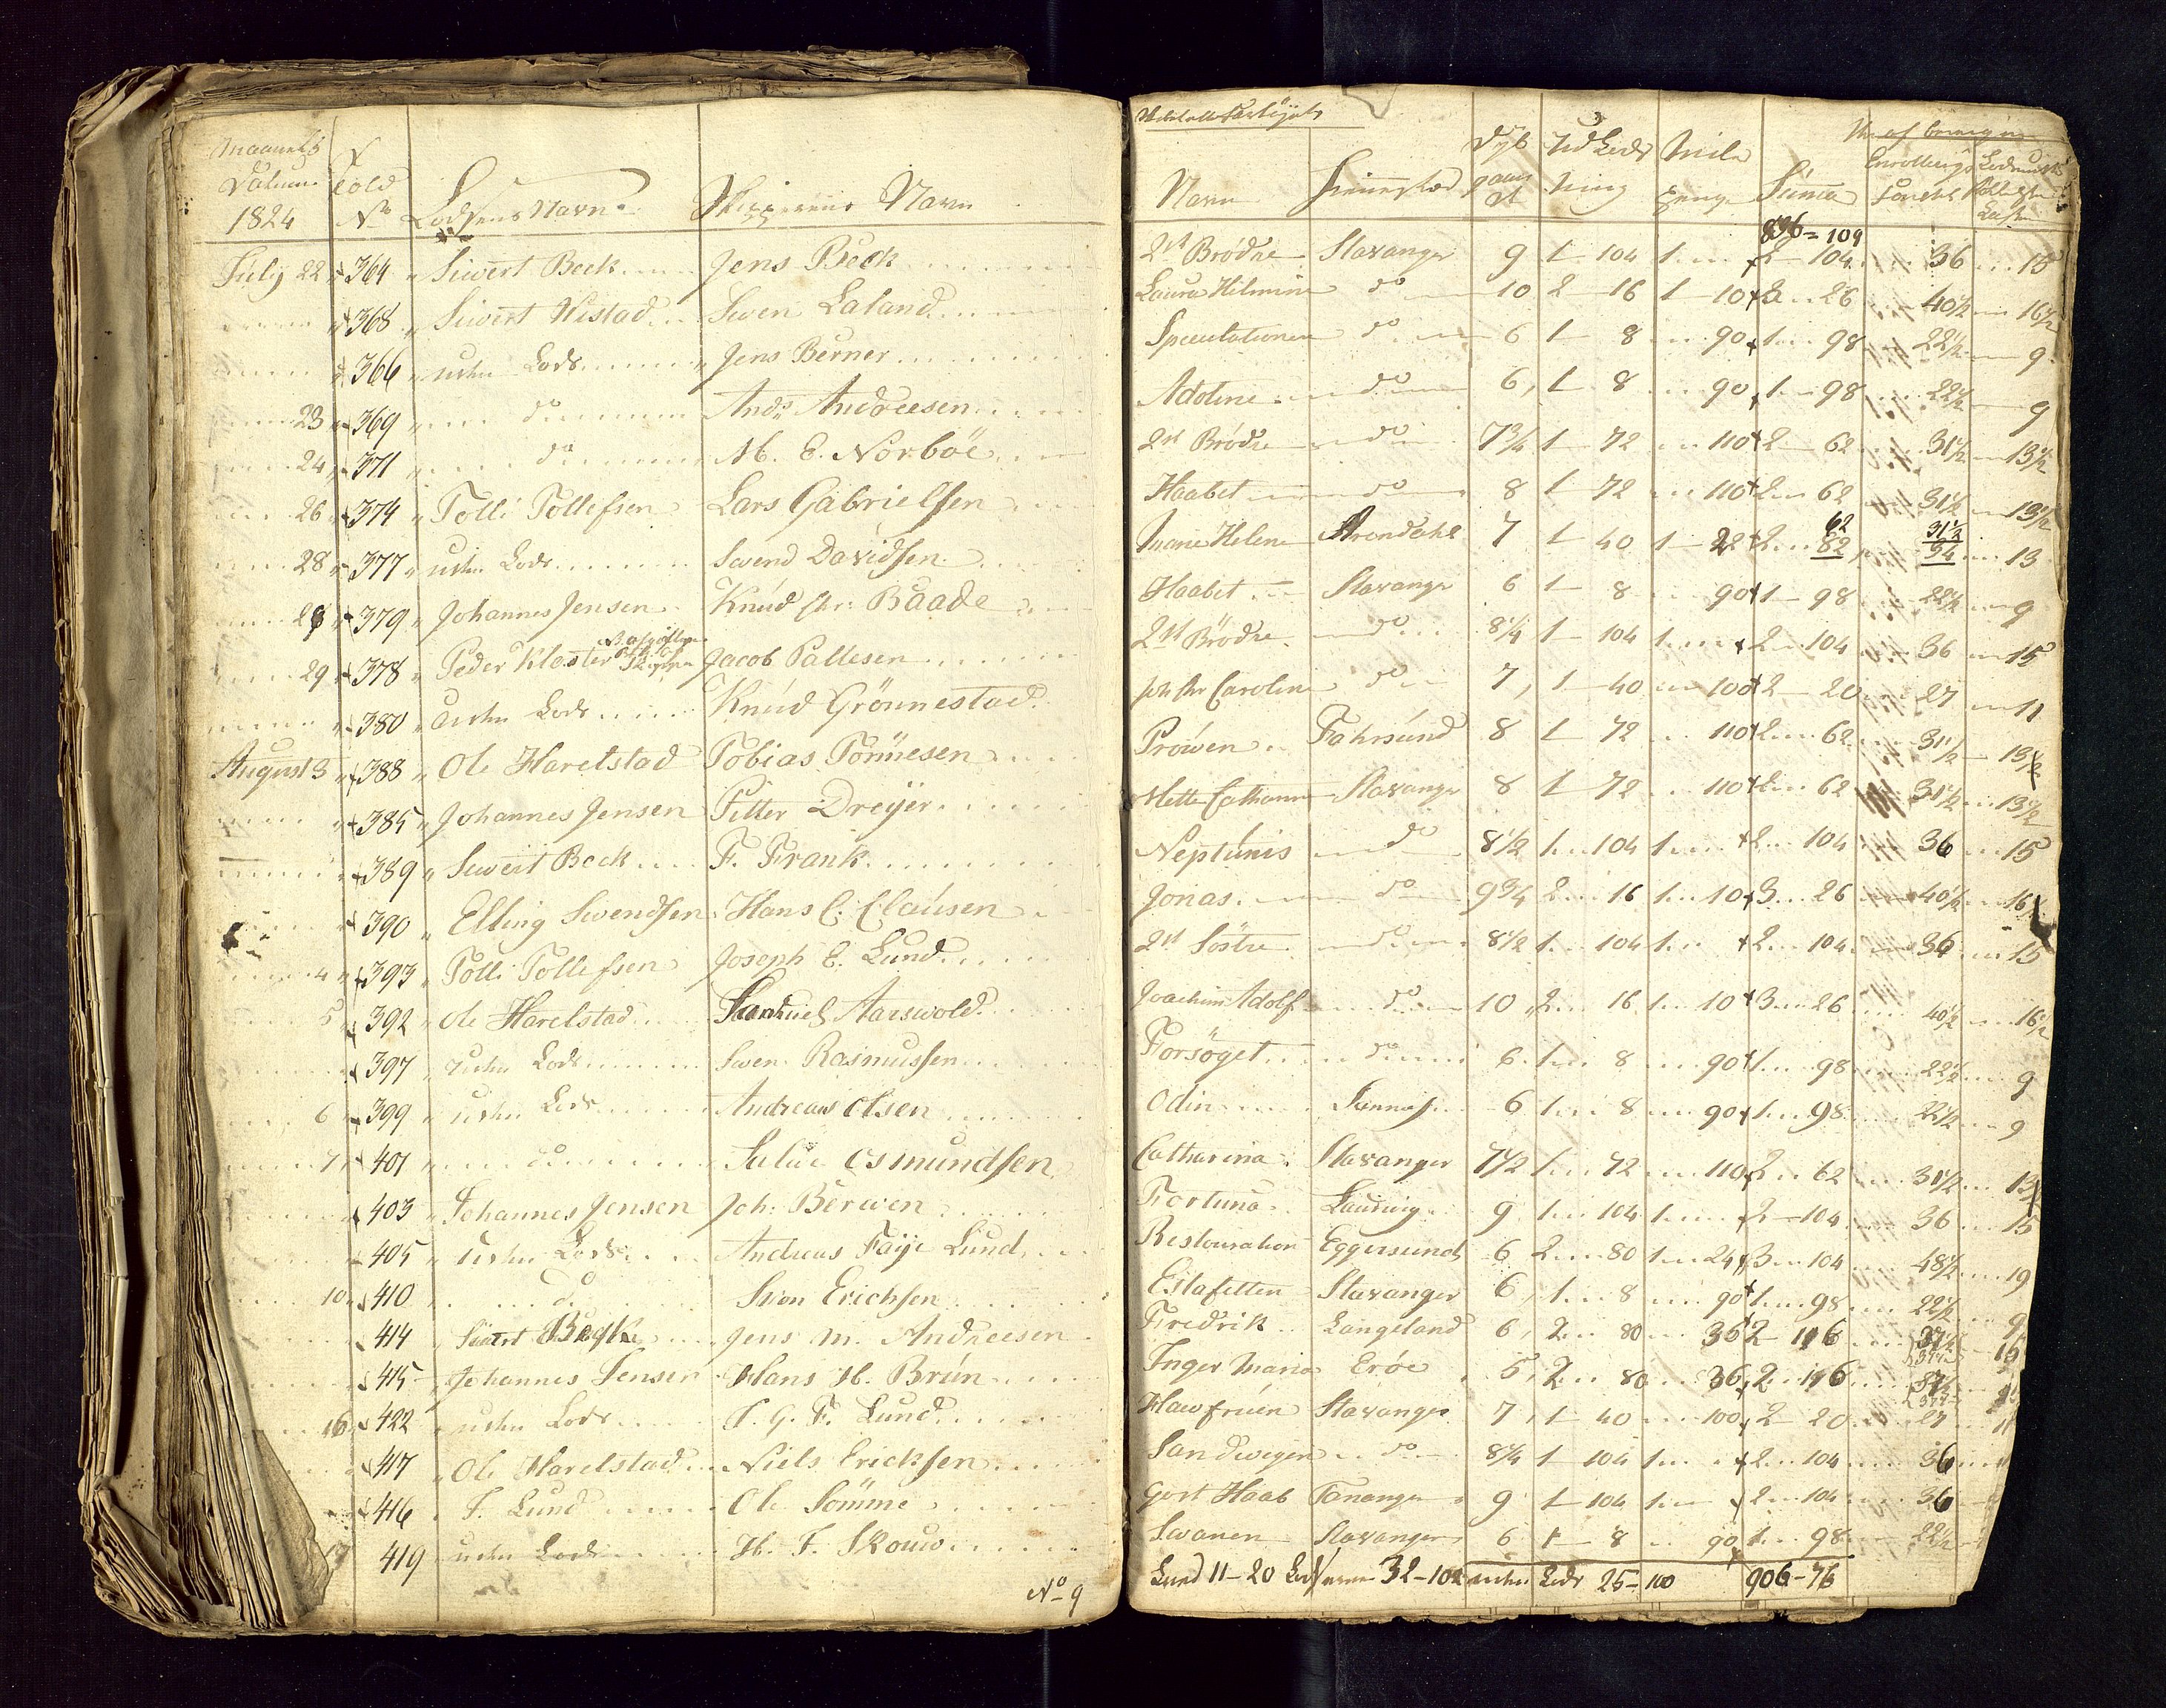 Maaneds Datum 1824 | Told No | Lodsens Navn | Skipperens Navn | Navn | Hiemmested | Dyb gaaende | Ud Lods ning | Mile Penge | Suma
896=104
July 22 364 Siwert Beck Jens Beck 2de Brødre Stavanger 9 1-104 1 2-104 36 15
368 Siwert Wistad Swen Laland Laura Helmine do 10 2-16 1-10 3-26 40½ 16½
366 uden Lods Jens Berner Speculationen do 6 1-8 90 1-98 22½ 9
23 369 do Ands Andreesen Adoline do 6 1-8 90 1-98 22½ 9
24 371 do M. E. Norböe 2de Brødre do 7¾ 1-72 110 2-62 31½ 13½
26 374 Tolli Tollefsen Lars Gabrielsen Haabet do 8 1-72 110 2-62 31½ 13½
28 377 uden Lods Swend Davidsen Marie Helene Arendahl 7 1-40 1-22 2-82 62 34 31½ 13
28 379 Johannes Jensen Knud Chr: Baade Haabet Stavanger 6 1-8 90 1-98 22½ 9
29 378 Peder Kloster Jacob Pallesen 2de Brødre do 8¼ 1-104 1 2-104 36 15
380 uden Lods Knud Grönnestad Joh Chr Caroline do 7 1-40 100 2-20 27 11
August 3 388 Ole Harelstad Tobias Tönnesen Prøwen Fahrsund 8 1-72 110 2-62 31½ 13½
385 Johannes Jensen Petter Dreÿer Mette Cathrine Stavanger 8 1-72 110 2-62 31½ 13½
389 Siwert Beck F. Frank Neptunis do 8½ 1-104 1 2-104 36 15
390 Elling Swendsen Hans C. Clausen Jonas do 9¾ 2-16 1-10 3-26 40½ 16½
4 393 Tolli Tollefsen Joseph E. Lund 2de Söstre do 8½ 1-104 1 2-104 36 15
5 392 Ole Harelstad Aarswold Joachim Adolf do 10 2-16 1-10 3-26 40½ 16½
397 uden Lods Swen Rasmussen Forsøget do 6 1-8 90 1-98 22½ 9
6 399 uden Lods Andreas Olsen Odin 6 1-8 90 1-98 22½ 9
7 401 do Osmundsen Catharina Stavanger 7½ 1-72 110 2-62 31½ 13
403 Johannes Jensen Joh: Berwen Fortuna Laurwig 9 1-104 1 2-104 36 15
405 uden Lods Andreas Faÿe Lund Restauration Eggersund 6 2-80 1-24 3-104 48½ 19
10 410 do Erichsen Estafetten Stavanger 6 1-8 90 1-98 22½ 9
414 Siwert Jens M. Andreesen Fredrik Langeland 6 2-80 36 2-116 15
415 Johannes Jensen Hans H. Brun Inger Maria Eröe 5 2-80 36 2-116
16 422 uden Lods P. G. F. Lund Hawfruen Stavanger 7 1-40 100 2-20 27 11
417 Ole Harelstad Niels Ericksen Sandwigen do 8¼ 1-104 1 2-104 36
416 F. Lund Ole Sömme Gott Haab Tananger 9 1-104 1 2-104 36
17 419 uden Lods H. F. Skouw Swanen Stavanger 6 1-8 90 1-98 22½
No 9
Lund 11-20 32-102 uden Lods 25-100 906-76